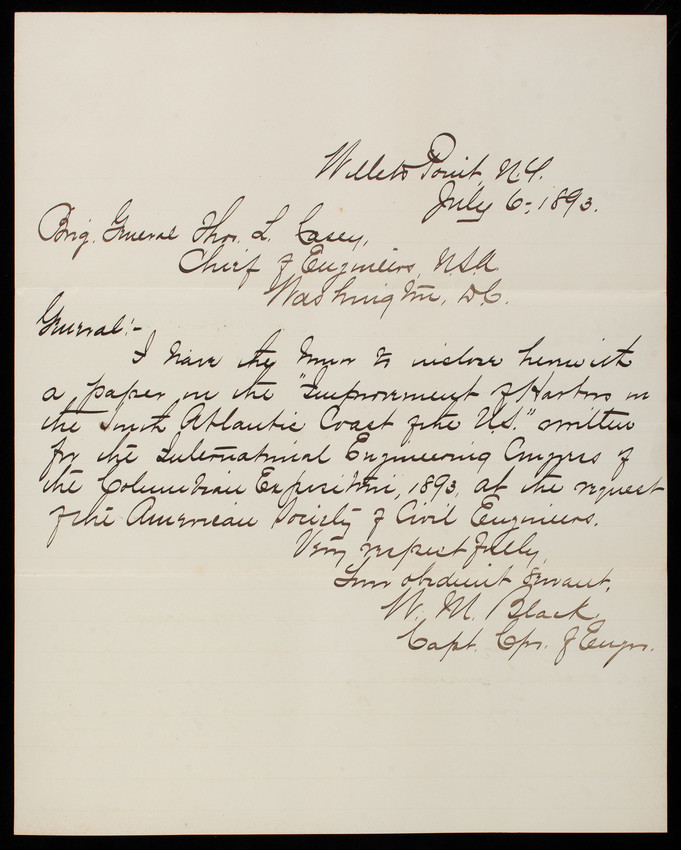 Willets Point, N.Y.
July 6, 1893.
Brig. General Thos. L. Casey,
Chief of Engineers, U.S.A.
Washington, D.C.
General:-
I have the honor to inclose herewith
a paper on the "Improvement of Harbors on
the South Atlantic Coast of the U.S." written
for the International Engineering Congress of
the Columbian Exposition, 1893, at the request
of the American Society of Civil Engineers.
Very respectfully,
Your obedient servant,
W. M. Black.
Capt. Cps. of Engrs.